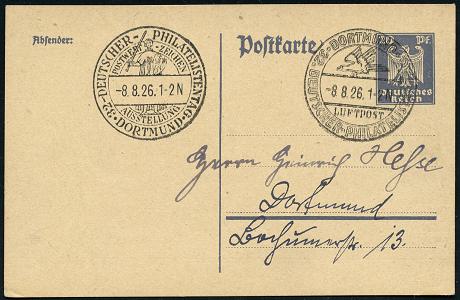 Absender:
32. DEUTSCHER PHILATELISTENTAG
POSTWERT-ZEICHEN
-8.8.26.1-2N
AUSSTELLUNG
DORTMUND
Postkarte
32. DORTMUND
DEUTSCHER-PHILATELIS
-8.8.26.1-2N
LUFTPOST
20 Pf
Deutsches
Reich
Herrn Heinrich Hesse
Dortmund
Bochumerstr. 13.